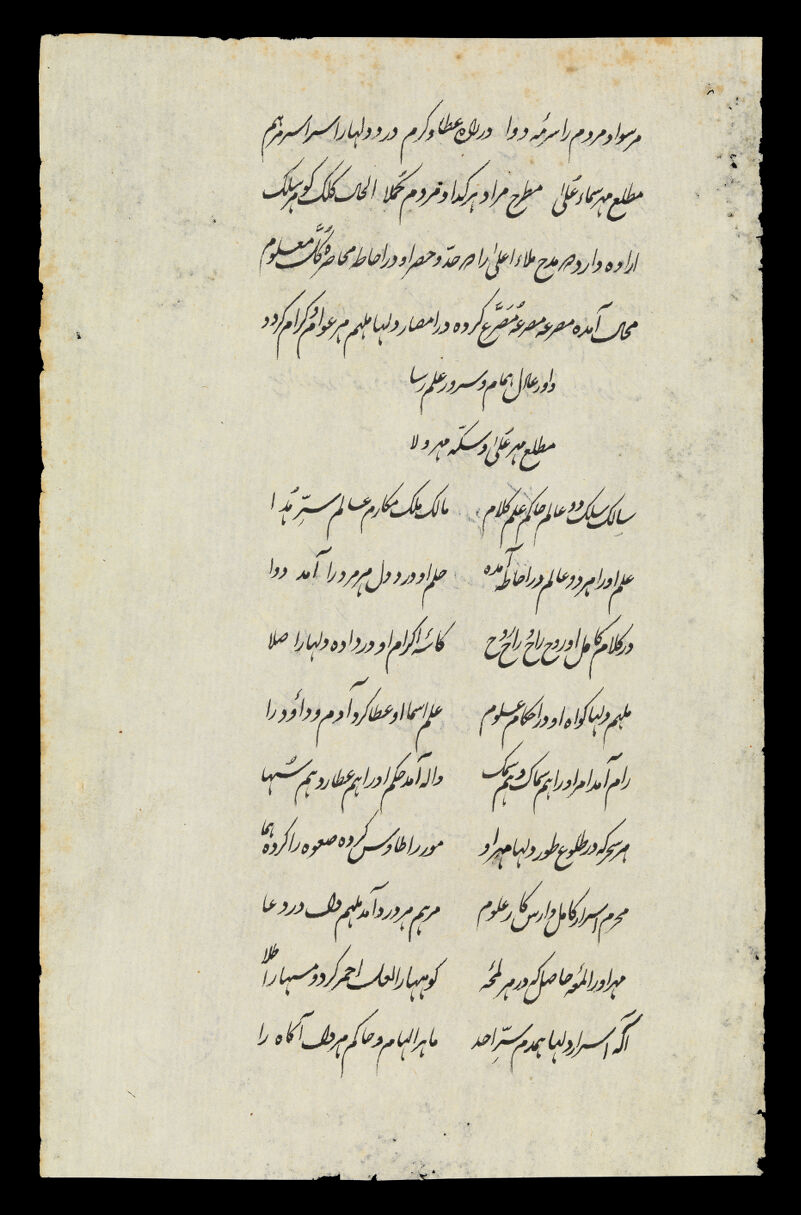 هر سواد مردم را سرمه و دوا در راه عطا و کرم درد دلها را سراسر مرهم
مطلع مهر سماء علیٰ مطرح مراد هر گدا و مردم کُملا الحال کلک گوهر سلک
اراده دارد که مدح ملاء اعلیٰ را که حدّ و حصر او در احاطه محاصرهٔ کُلّ معلوم
محال آمده مصرعه مصرعه مُصَرَّع کرده در امصار دلها ملهم هر عوام و کرام گردد
داور عادل همام و سرور علم رسا
مطلع مهر عُلیٰ و سکّه مهر ولا
سالک سلک دو عالم حاکم علم کلام مالک ملک مکارم عالم سرِّ هُدا
علم او را هر دو عالم در احاطه آمده حلم او درد دل هر مرد را آمد دوا
در کلام کامل او روح راح و راح روح کاسهٔ اکرام او در داده دلها را صلا
ملهم دلها گواه او در احکام علوم علم اسما او عطا کرد آدم و داؤد را
رام آمد امر او را هم سماک و هم سمک واله آمد حکم او را هم عطارد هم سُها
هر سحر که در طلوع طور دلها مهر او مور را طاوس کرده صعوه را کرده هما
محرم اسرار کامل وارس کار علوم مرهم هر درد آمد ملهم دل در دعا
مهر او را لمعه حاصل که در هر لمحهٔ کوهها را لعل احمر کرد و مسها را طلا
آگه اسرار دلها همدم سرِّ احد ماهر الهام و حاکم هر دل آگاه را